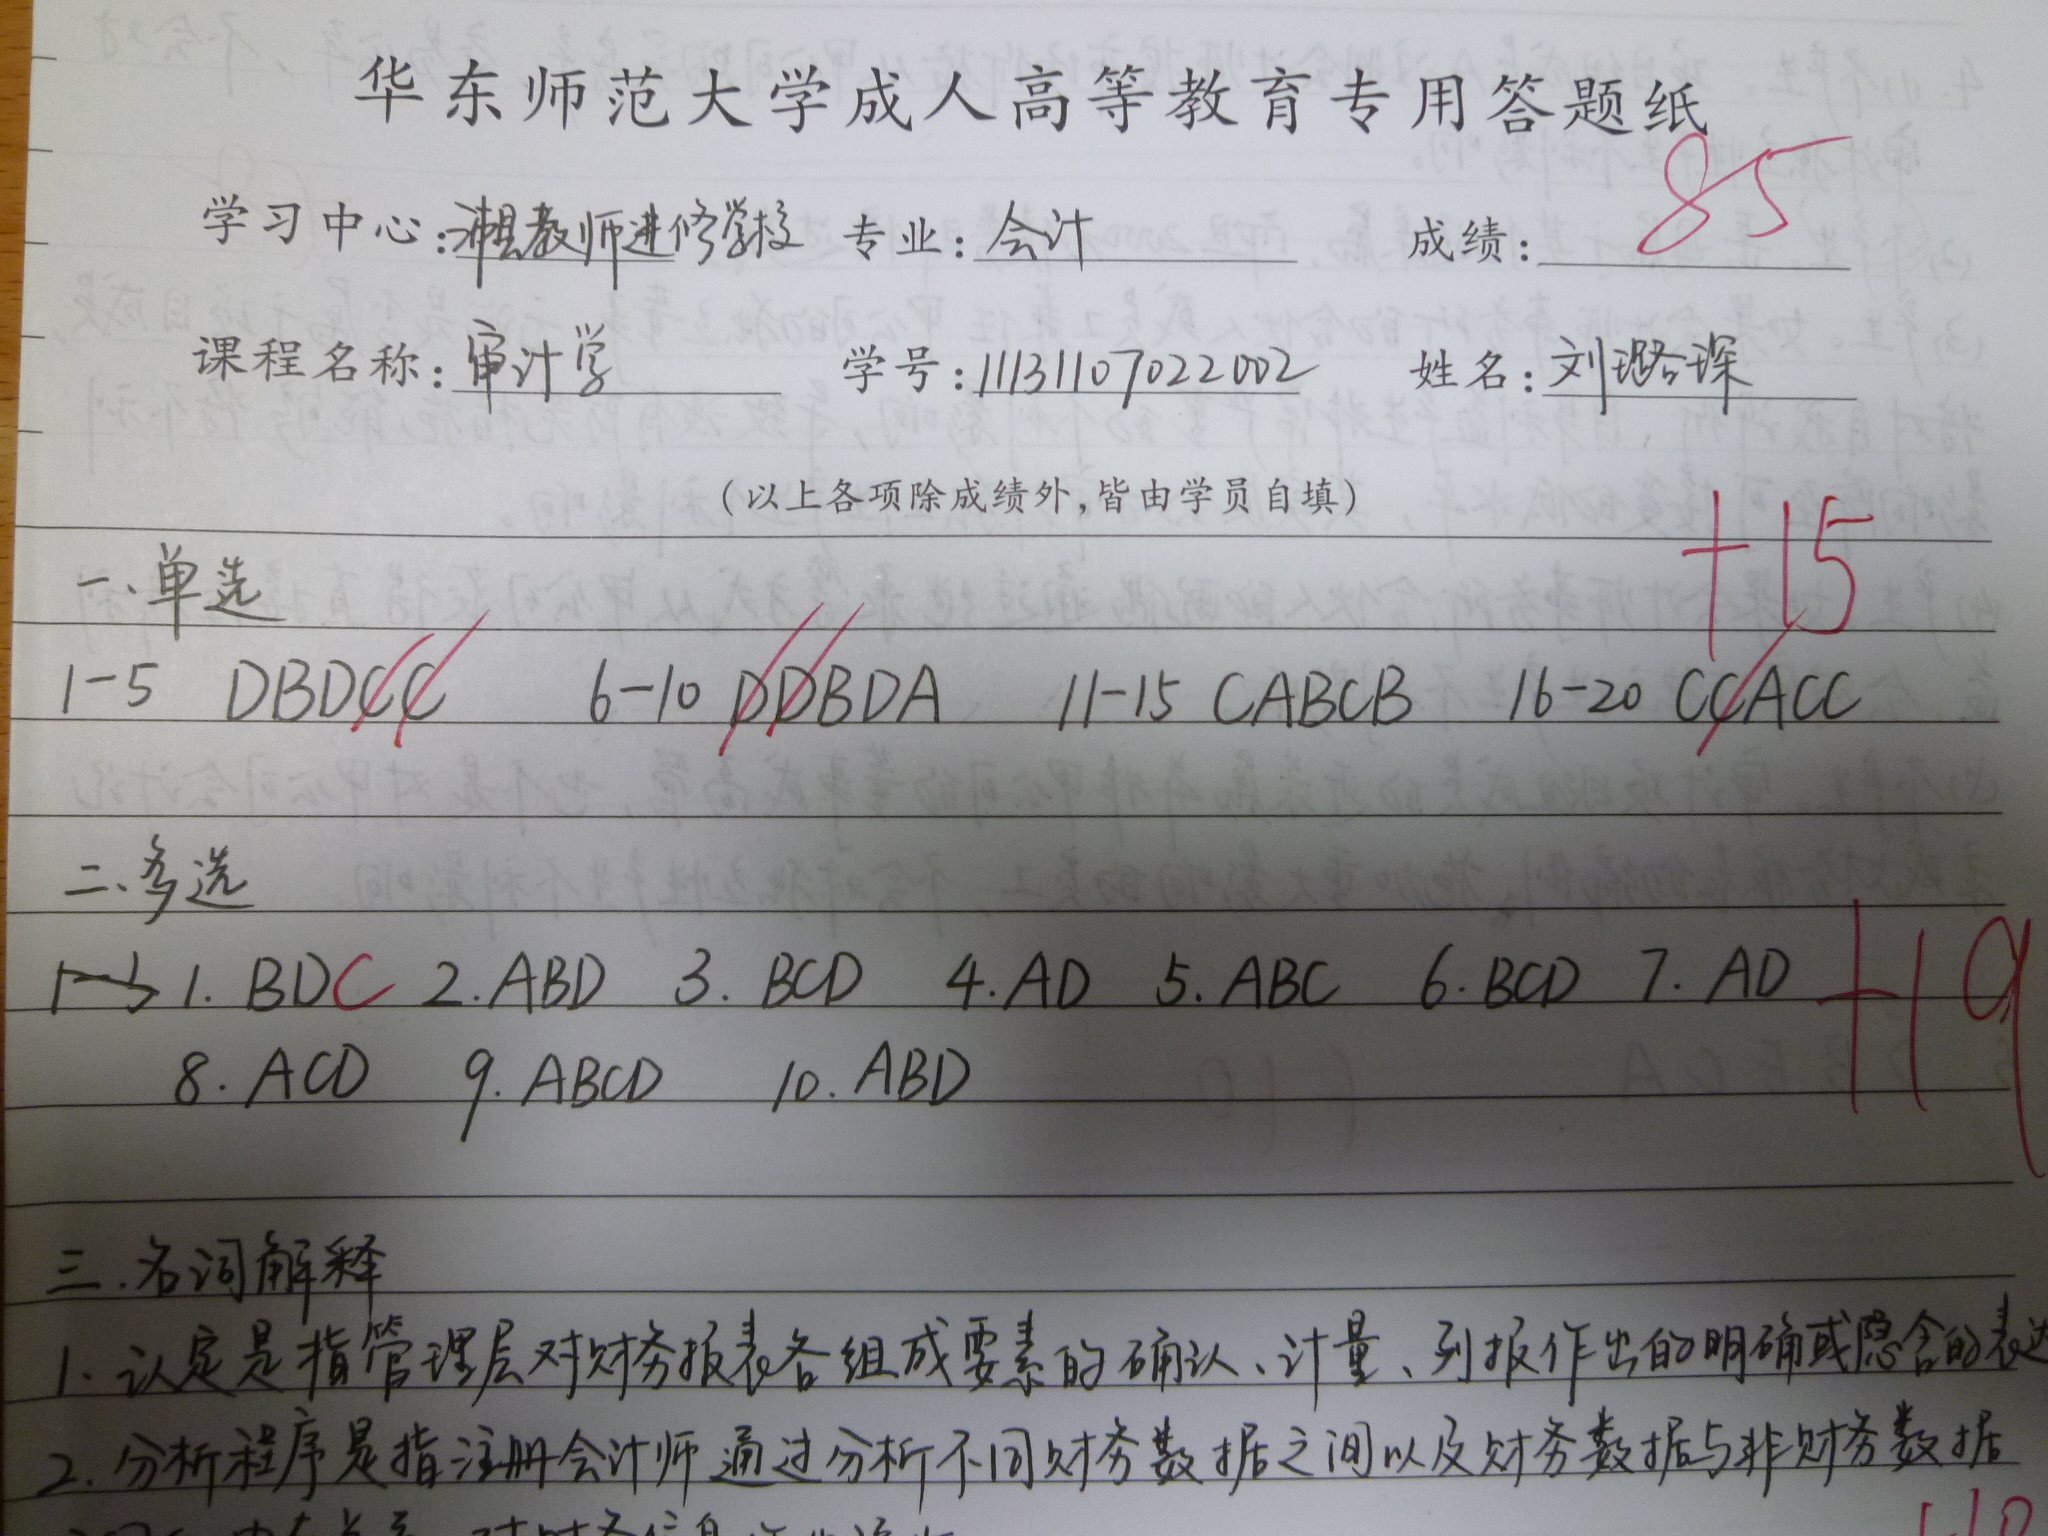 华东师范大学成人高等教育专用答题纸
学习中心:教师进修学校 专业:会计 成绩:85
课程名称:审计学 学号:11131107022002 姓名:刘璐琛
(以上各项除成绩外,皆由学员自填)
一、单选 +15
1-5 DBDCC 6-10 DDBDA 11-15 CABCB 16-20 CCACC
二、多选
1. BDC 2. ABD 3. BCD 4. AD 5. ABC 6. BCD 7. AD +19
8. ACD 9. ABCD 10. ABD
三.名词解释
1. 认定是指管理层对财务报表各组成要素的确认、计量、列报作出的明确或隐含的表达
2. 分析程序是指注册会计师通过分析不同财务数据之间以及财务数据与非财务数据